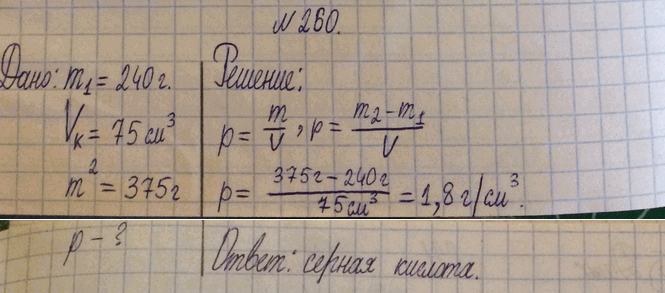 № 260.
Дано: m₁ = 240 г.
Vк = 75 см³
m² = 375 г
p - ?
Решение:
p = m/V, p = (m₂ - m₁)/V
p = (375 г - 240 г)/75 см³ = 1,8 г/см³.
Ответ: серная кислота.